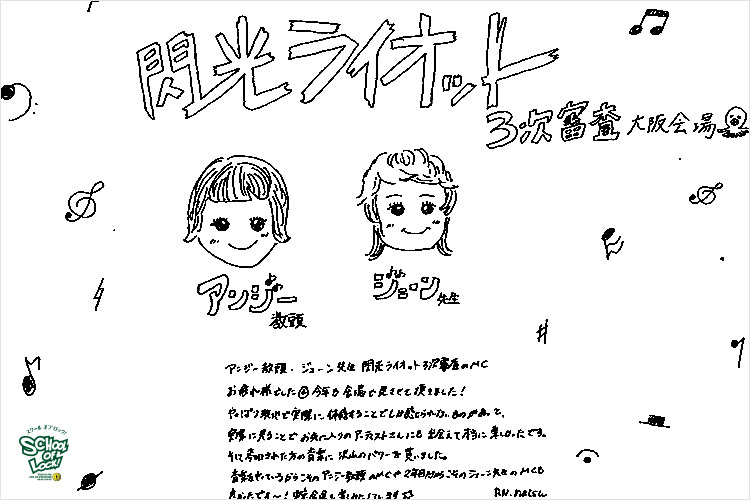 閃光ライオット
3次審査 大阪会場
アンジー
教頭
ジョーン先生
アンジー教頭、ジョーン先生 閃光ライオット3次審査のMC
お疲れ様でした 今年も会場で見させて頂きました!
やっぱり現地で実際に体感することでしか感じられないものがあって、
実際に見ることでお気に入りのアーティストさんにも出会えて本当に楽しかったです。
そして参加された方の音楽に沢山のパワーを貰いました。
音楽をやっているからこそのアンジー教頭のMCや2年目だからこそのジョーン先生のMCも
良かったです〜!
スクール オブ ロック!
SCHOOL OF LOCK!